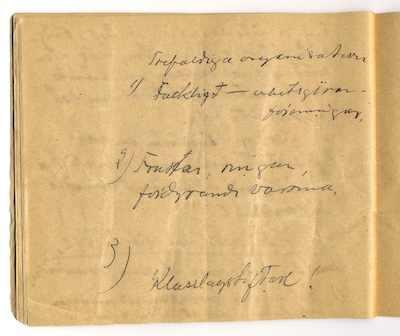 Trefaldiga organisation
1) Fackligt — arbetsgivare-
föreningar,
2) Trustar, ringar,
fördyrande varorna.
3)
Klasslagstiftad !